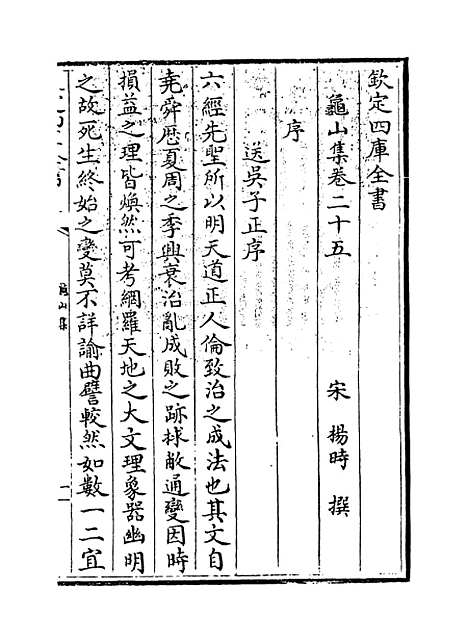 欽定四庫全書
龜山集卷二十五
宋 楊時 撰
序
送吳子正序
六經先聖所以明天道正人倫致治之成法也其文自
堯舜歷夏周之季興衰治亂成敗之跡捄敝通變因時
損益之理皆煥然可考網羅天地之大文理象器幽明
之故死生終始之變莫不詳諭曲譬較然如數一二宜
龜山集